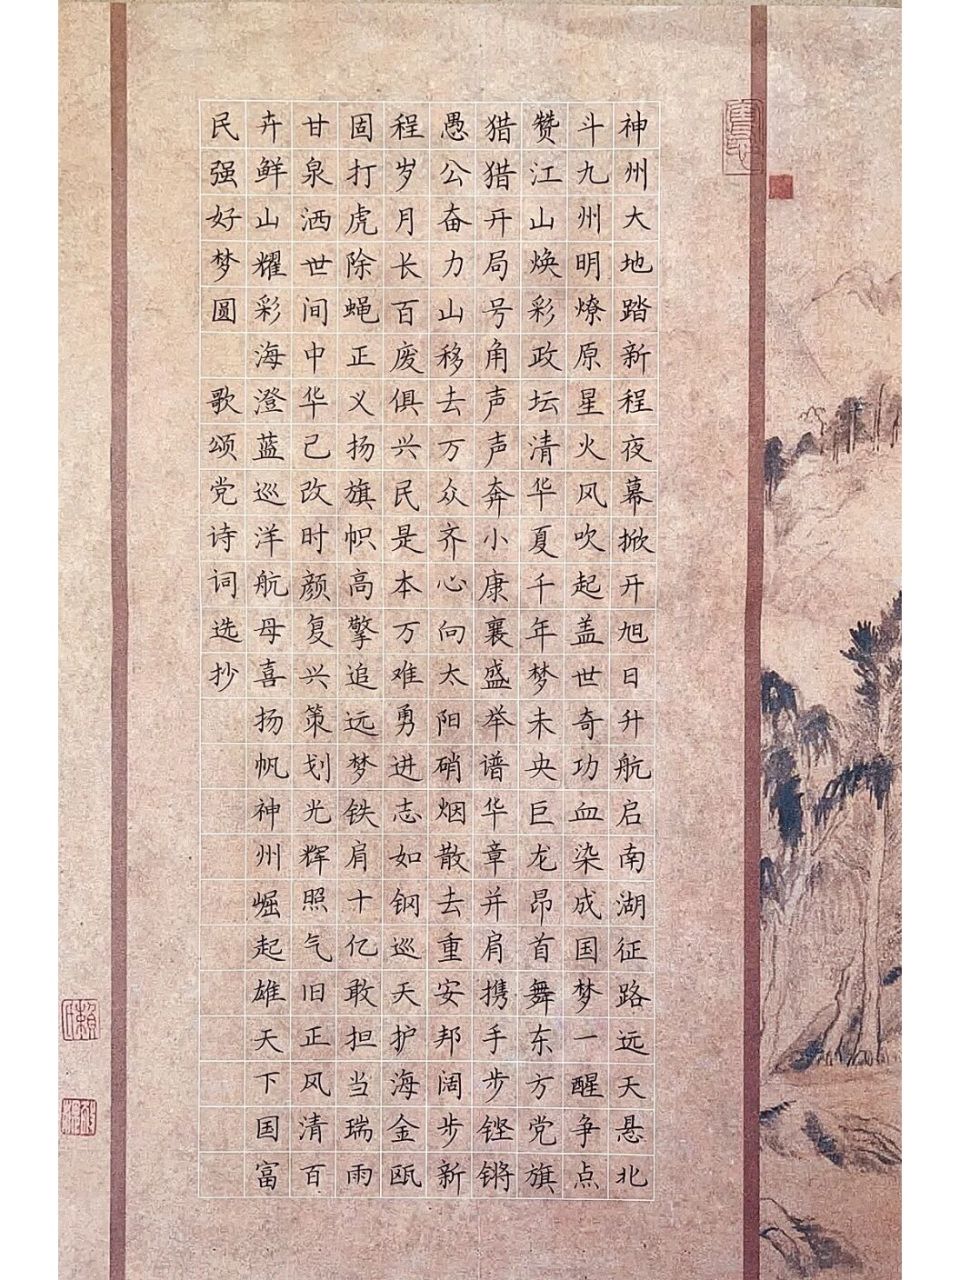 神州大地踏新程夜幕掀开旭日升航启南湖征路远天悬北
斗九州明燎原星火风吹起盖世奇功血染成国梦一醒争点
赞江山焕彩政坛清华夏千年梦未央巨龙昂首舞东方党旗
猎猎开局号角声声奔小康襄盛举谱华章并肩携手步铿锵
愚公奋力山移去万众齐心向太阳硝烟散去重安邦阔步新
程岁月长百废俱兴民是本万难勇进志如钢巡天护海金瓯
固打虎除蝇正义扬旗帜高擎追远梦铁肩十亿敢担当瑞雨
甘泉洒世间中华己改时颜复兴策划光辉照气旧正风清百
卉鲜山耀彩海澄蓝巡洋航母喜扬帆神州崛起雄天下国富
民强好梦圆 歌颂党诗词选抄